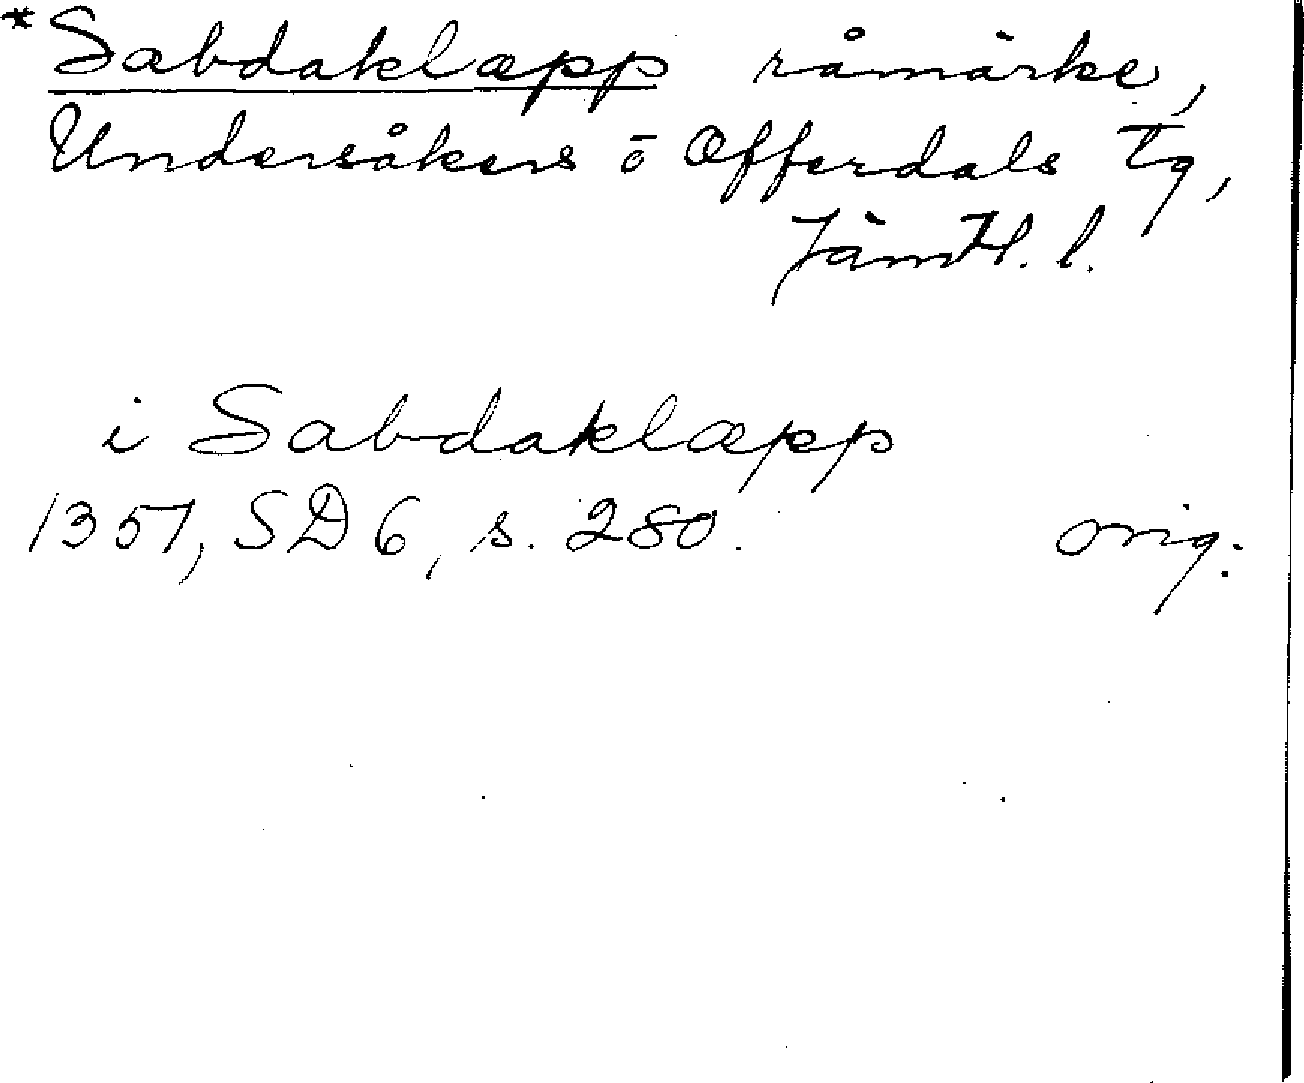 *Sabdaklæpp råmärke,
Undersåkers o Offerdals tg,
Jämtl. l.
i Sabdaklæpp
1351, SD 6, s. 280. orig.